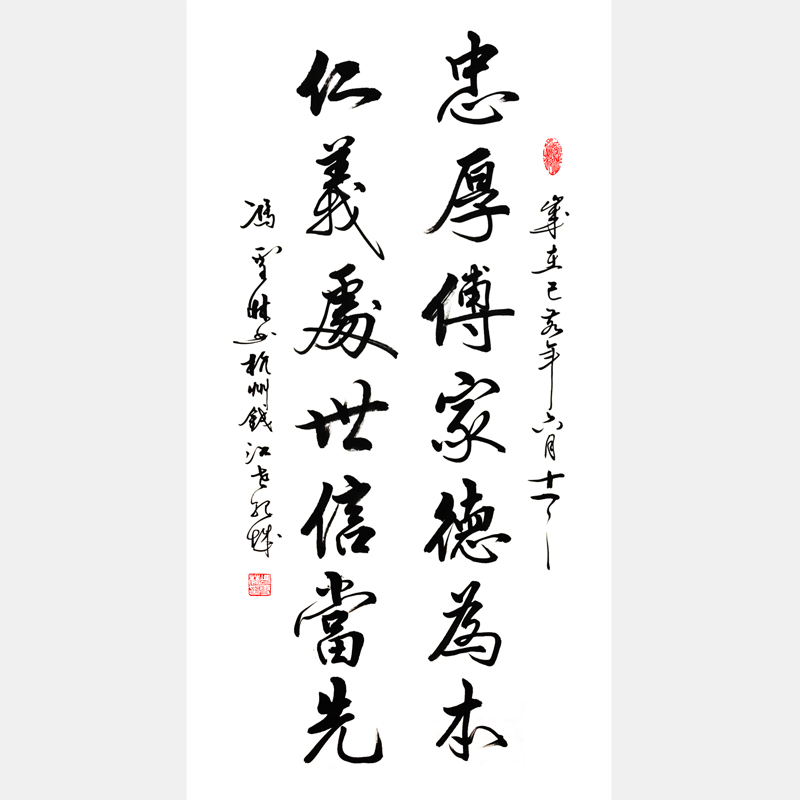 歲在己亥年六月十一
忠厚傳家德為本
仁義處世信當先
馮雪林杭州錢江世紀城